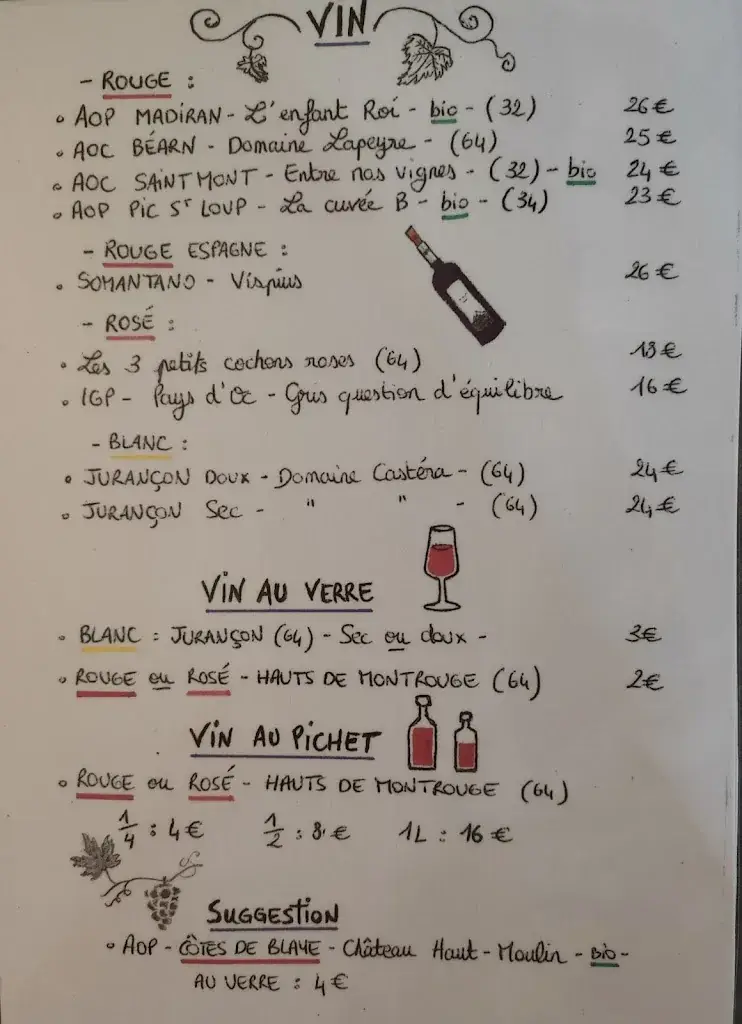 VIN
- ROUGE :
• AOP MADIRAN - L'enfant Roi - bio - (32) 26 €
• AOC BÉARN - Domaine Lapeyre - (64) 25 €
• AOC SAINT MONT - Entre nos vignes - (32) - bio 24 €
• AOP Pic St LOUP - La cuvée B - bio - (34) 23 €
- ROUGE ESPAGNE :
• SOMANTANO - Vispius 26 €
- ROSÉ :
• Les 3 petits cochons roses (64) 13 €
• IGP - Pays d'Oc - Gris question d'équilibre 16 €
- BLANC :
• JURANÇON Doux - Domaine Castéra - (64) 24 €
• JURANÇON Sec - " " - (64) 24 €
VIN AU VERRE
• BLANC : JURANÇON (64) - Sec ou doux - 3€
• ROUGE ou ROSÉ - HAUTS DE MONTROUGE (64) 2€
VIN AU PICHET
• ROUGE ou ROSÉ - HAUTS DE MONTROUGE (64)
1/4 : 4€ 1/2 : 8 € 1L : 16 €
SUGGESTION
• AOP - CÔTES DE BLAYE - Château Haut-Moulin - Bio -
AU VERRE : 4€